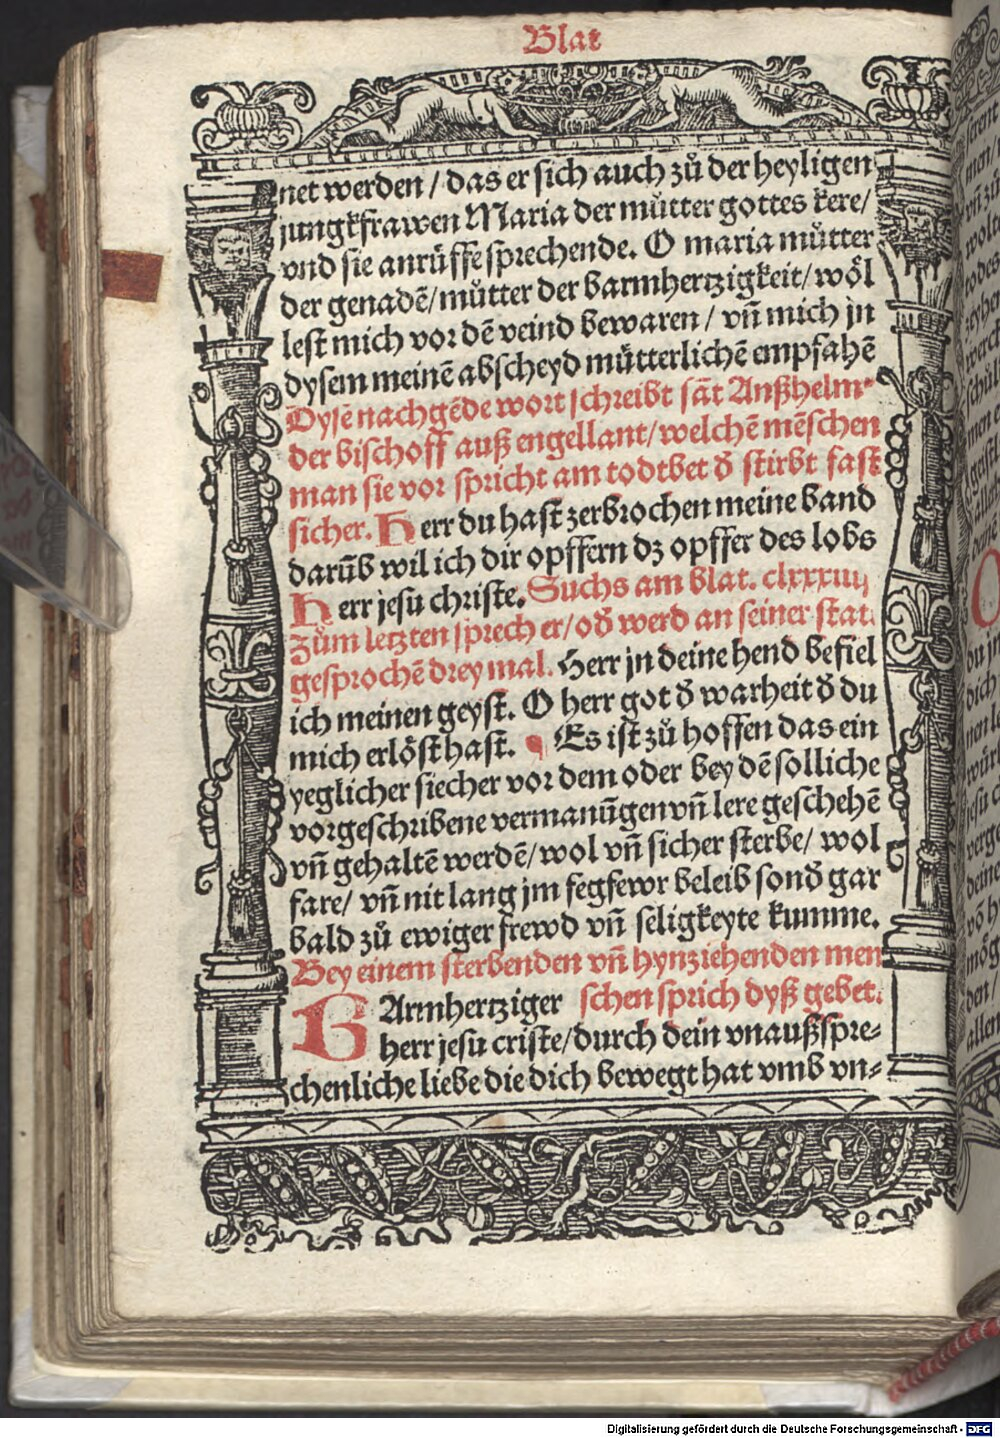 Blat
net werden / das er sich auch zů der heyligen
jungkfrawen Maria der můtter gottes kere /
vnd sie anrůffe sprechende. O maria můtter
der genadē / můtter der barmhertzigkeit / wöl
lest mich vor dē veind bewaren / vn̄ mich jn
dysem meinē abscheyd můtterlichē empfahē
Dysē nachgēde wort schreibt sāt Anßhelm
der bischoff auß engellant / welchē mēschen
man sie vor spricht am todtbet đ stirbt fast
sicher. Herr du hast zerbrochen meine band
darūb wil ich dir opffern dz opffer des lobs
Herr jesu christe. Suchs am blat. clxxxiiij
Zům letzten sprech er / ođ werd an seiner stat.
gesprochē drey mal. Herr jn deine hend befiel
ich meinen geyst. O herr got đ warheit đ du
mich erlöst hast. ¶ Es ist zů hoffen das ein
yeglicher siecher vor dem oder bey dē solliche
vorgeschribene vermanūgen vn̄ lere geschehē
vn̄ gehaltē werdē / wol vn̄ sicher sterbe / wol
fare / vn̄ nit lang jm fegfewr beleib sonđ gar
bald zů ewiger frewd vn̄ seligkeyte kumme.
Bey einem sterbenden vn̄ hynziehenden men
BArmhertziger schen sprich dyß gebet.
herr jesu criste / durch dein vnaußspre-
chenliche liebe die dich bewegt hat vmb vn-
Digitalisierung gefördert durch die Deutsche Forschungsgemeinschaft - DFG